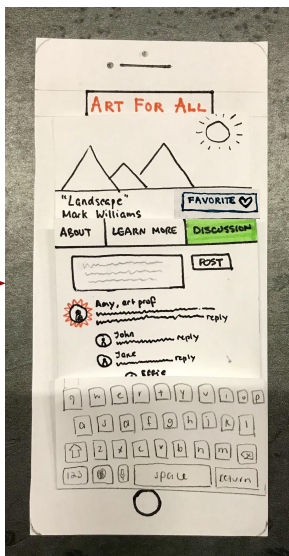 ART FOR ALL
"Landscape"
Mark Williams
FAVORITE
ABOUT LEARN MORE DISCUSSION
POST
Amy, art prof
reply
John
reply
Jane
reply
q w e r t y u i o p
a s d f g h j k l
z x c v b n m
123 space return